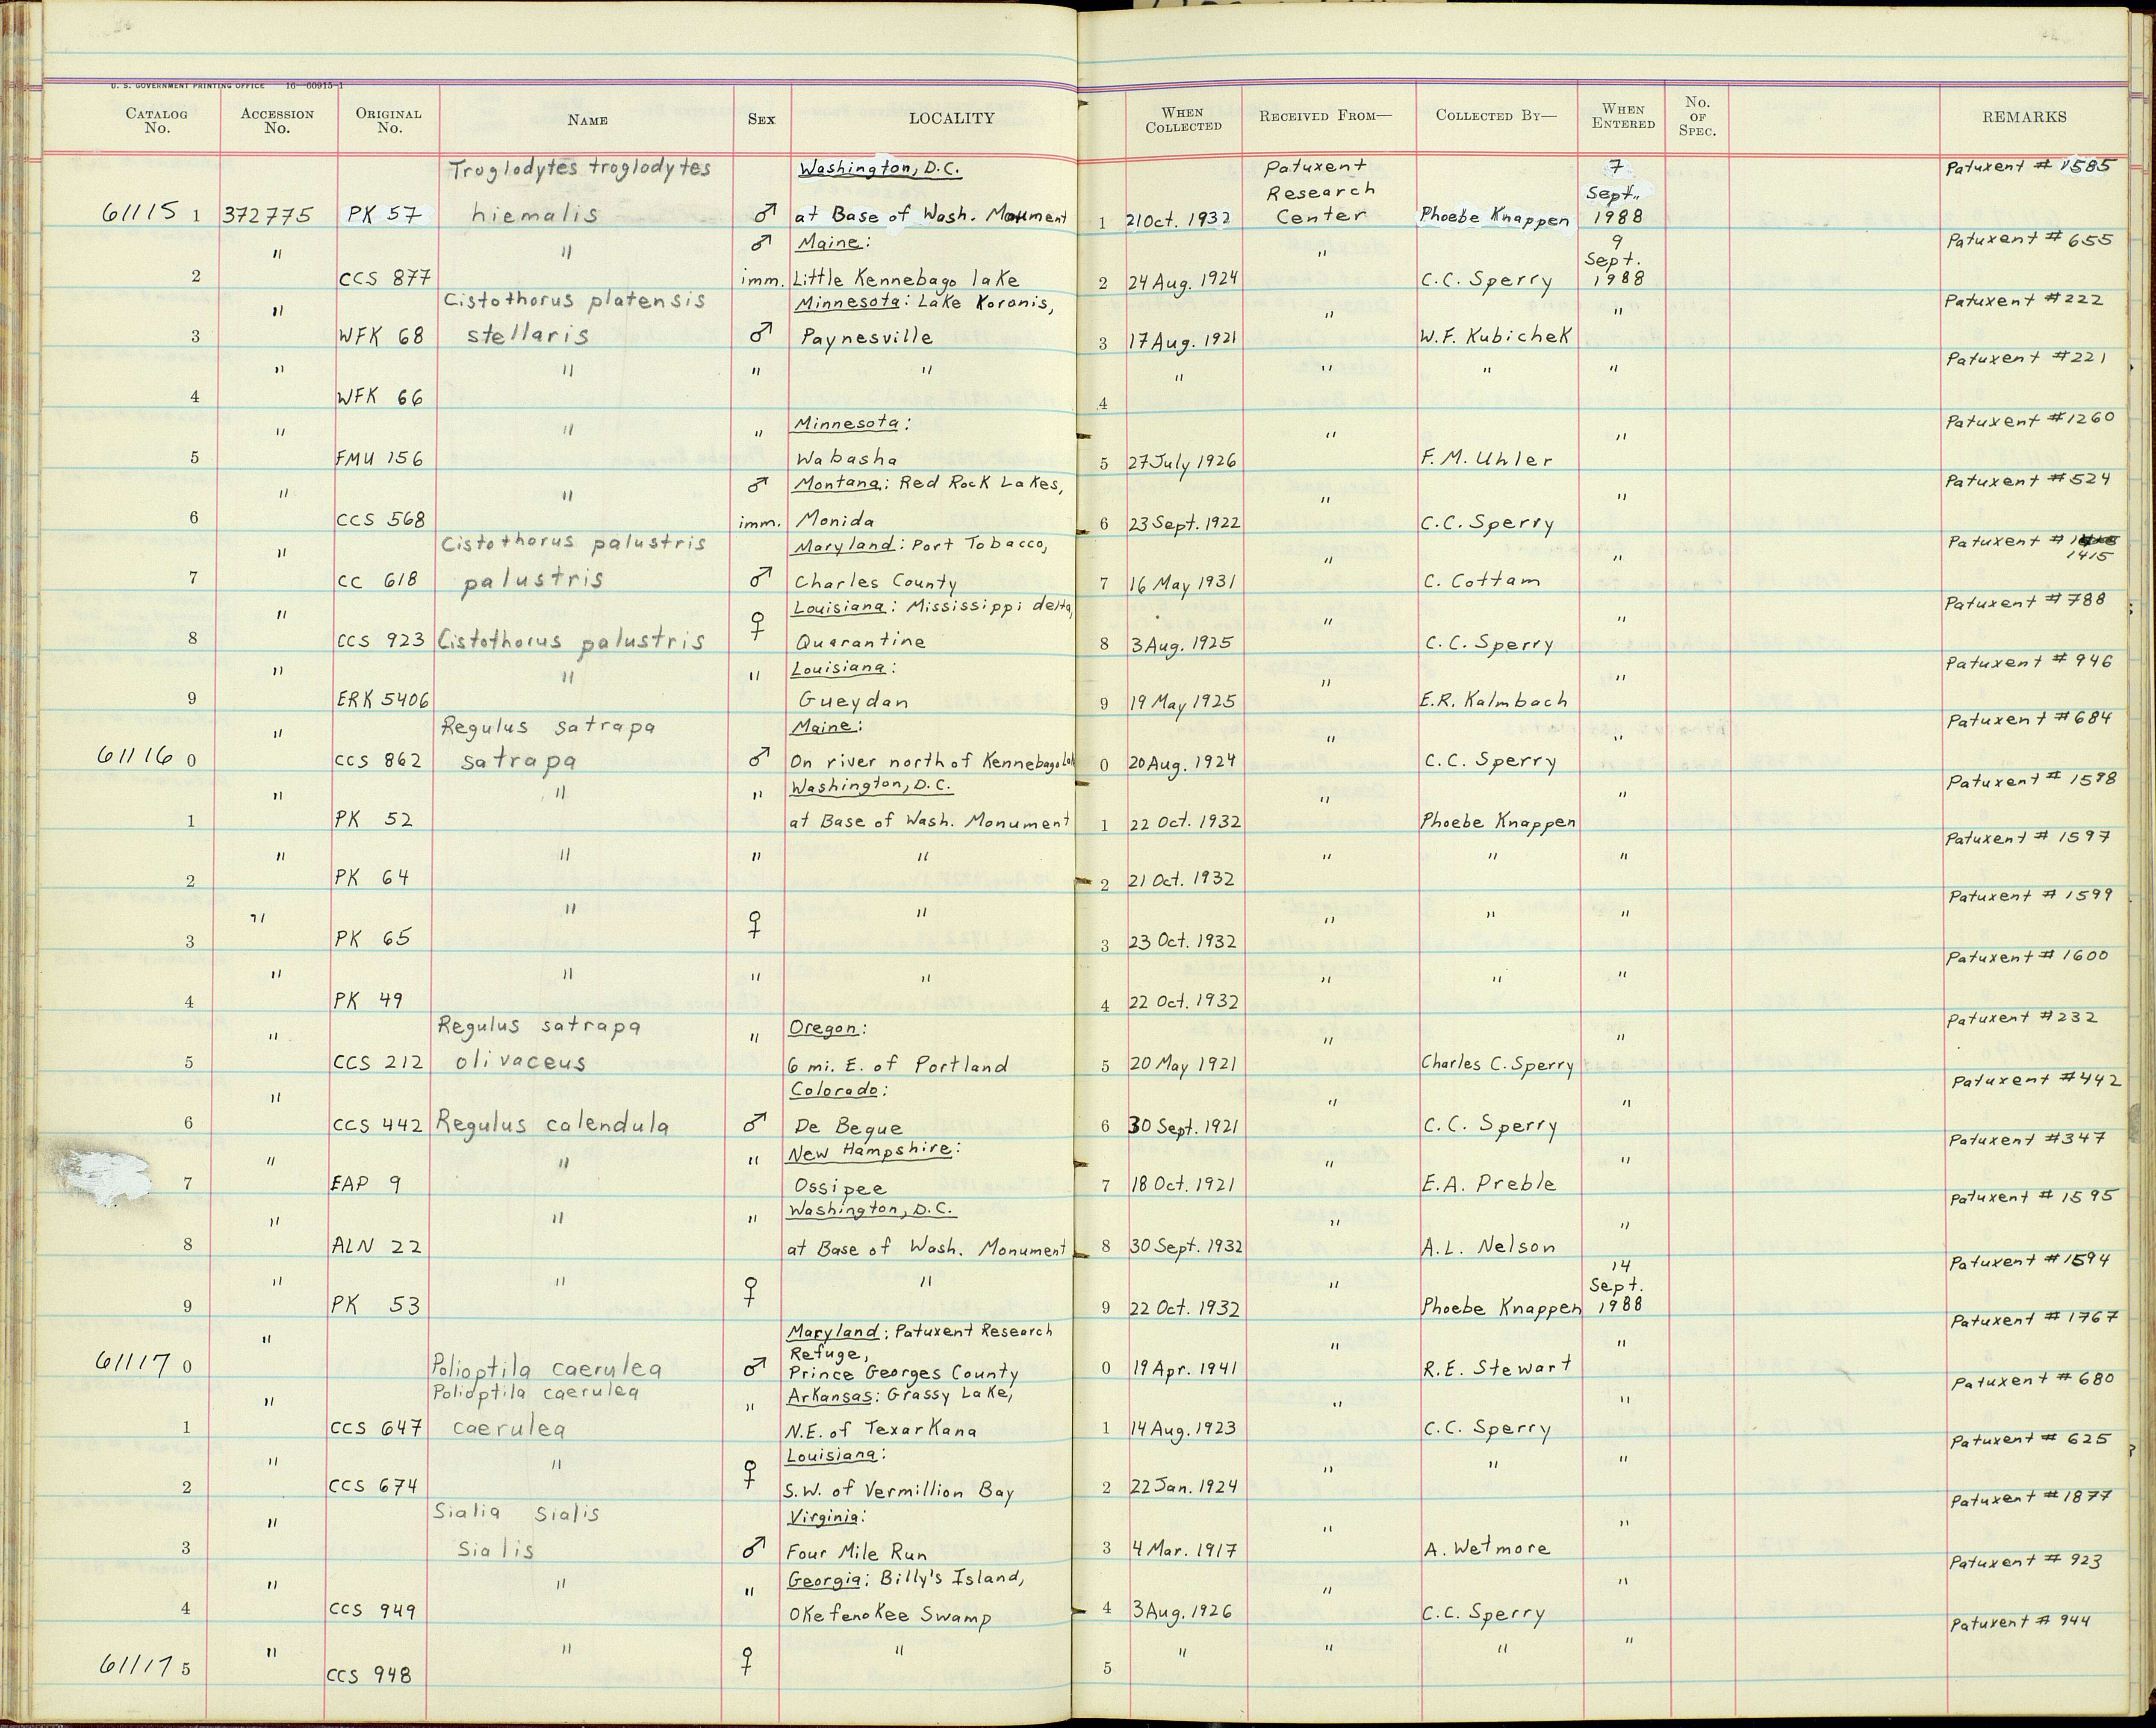 U. S. GOVERNMENT PRINTING OFFICE 16—60915-1
CATALOG No. ACCESSION No. ORIGINAL No. NAME SEX LOCALITY WHEN COLLECTED RECEIVED FROM— COLLECTED BY— WHEN ENTERED No. OF SPEC. REMARKS
Troglodytes troglodytes Washington, D.C. Patuxent 7 Patuxent # 1585
Research Sept.
61115 1 372775 PK 57 hiemalis ♂ at Base of Wash. Monument 1 21 Oct. 1932 Center Phoebe Knappen 1988
" " ♂ Maine: " 9 Patuxent # 655
Sept.
2 CCS 877 imm. Little Kennebago lake 2 24 Aug. 1924 C.C. Sperry 1988
" Cistothorus platensis Minnesota: Lake Koronis, " " Patuxent #222
3 WFK 68 stellaris ♂ Paynesville 3 17 Aug. 1921 W.F. Kubichek
" " " " " " " " Patuxent #221
4 WFK 66 4
" " " Minnesota: " " Patuxent #1260
5 FMU 156 Wabasha 5 27 July 1926 F.M. Uhler
" " ♂ Montana: Red Rock Lakes, " " Patuxent #524
6 CCS 568 imm. Monida 6 23 Sept. 1922 C.C. Sperry
" Cistothorus palustris Maryland: Port Tobacco, " " Patuxent #
1415
7 CC 618 palustris ♂ Charles County 7 16 May 1931 C. Cottam
" ♀ Louisiana: Mississippi delta, " " Patuxent #788
8 CCS 923 Cistothorus palustris Quarantine 8 3 Aug. 1925 C.C. Sperry
" " " Louisiana: " " Patuxent # 946
9 ERK 5406 Gueydan 9 19 May 1925 E.R. Kalmbach
" Regulus satrapa Maine: " " Patuxent #684
61116 0 CCS 862 satrapa ♂ On river north of Kennebago Lak 0 20 Aug. 1924 C.C. Sperry
" " " Washington, D.C. " " Patuxent # 1598
1 PK 52 at Base of Wash. Monument 1 22 Oct. 1932 Phoebe Knappen
" " " " " " " Patuxent # 1597
2 PK 64 2 21 Oct. 1932
" " ♀ " " " " Patuxent # 1599
3 PK 65 3 23 Oct. 1932
" " " " " " " Patuxent # 1600
4 PK 49 4 22 Oct. 1932
" Regulus satrapa " Oregon: " " Patuxent #232
5 CCS 212 olivaceus 6 mi. E. of Portland 5 20 May 1921 Charles C. Sperry
" Colorado: " " Patuxent #442
6 CCS 442 Regulus calendula ♂ De Beque 6 30 Sept. 1921 C.C. Sperry
" " " New Hampshire: " " Patuxent #347
7 EAP 9 Ossipee 7 18 Oct. 1921 E.A. Preble
" " " Washington, D.C. " " Patuxent # 1595
8 ALN 22 at Base of Wash. Monument 8 30 Sept. 1932 A.L. Nelson
" " ♀ " " 14 Patuxent #1594
Sept.
9 PK 53 9 22 Oct. 1932 Phoebe Knappen 1988
" Maryland: Patuxent Research " " Patuxent # 1767
Refuge,
61117 0 Polioptila caerulea ♂ Prince Georges County 0 19 Apr. 1941 R.E. Stewart
" Polioptila caerulea " Arkansas: Grassy Lake, " " Patuxent # 680
1 CCS 647 caerulea N.E. of Texarkana 1 14 Aug. 1923 C.C. Sperry
" " ♀ Louisiana: " " " Patuxent # 625
2 CCS 674 S.W. of Vermillion Bay 2 22 Jan. 1924
" Sialia sialis Virginia: " " Patuxent #1877
3 sialis ♂ Four Mile Run 3 4 Mar. 1917 A. Wetmore
" " " Georgia: Billy's Island, " " Patuxent # 923
4 CCS 949 Okefenokee Swamp 4 3 Aug. 1926 C.C. Sperry
" " ♀ " " " " " Patuxent # 944
61117 5 CCS 948 5